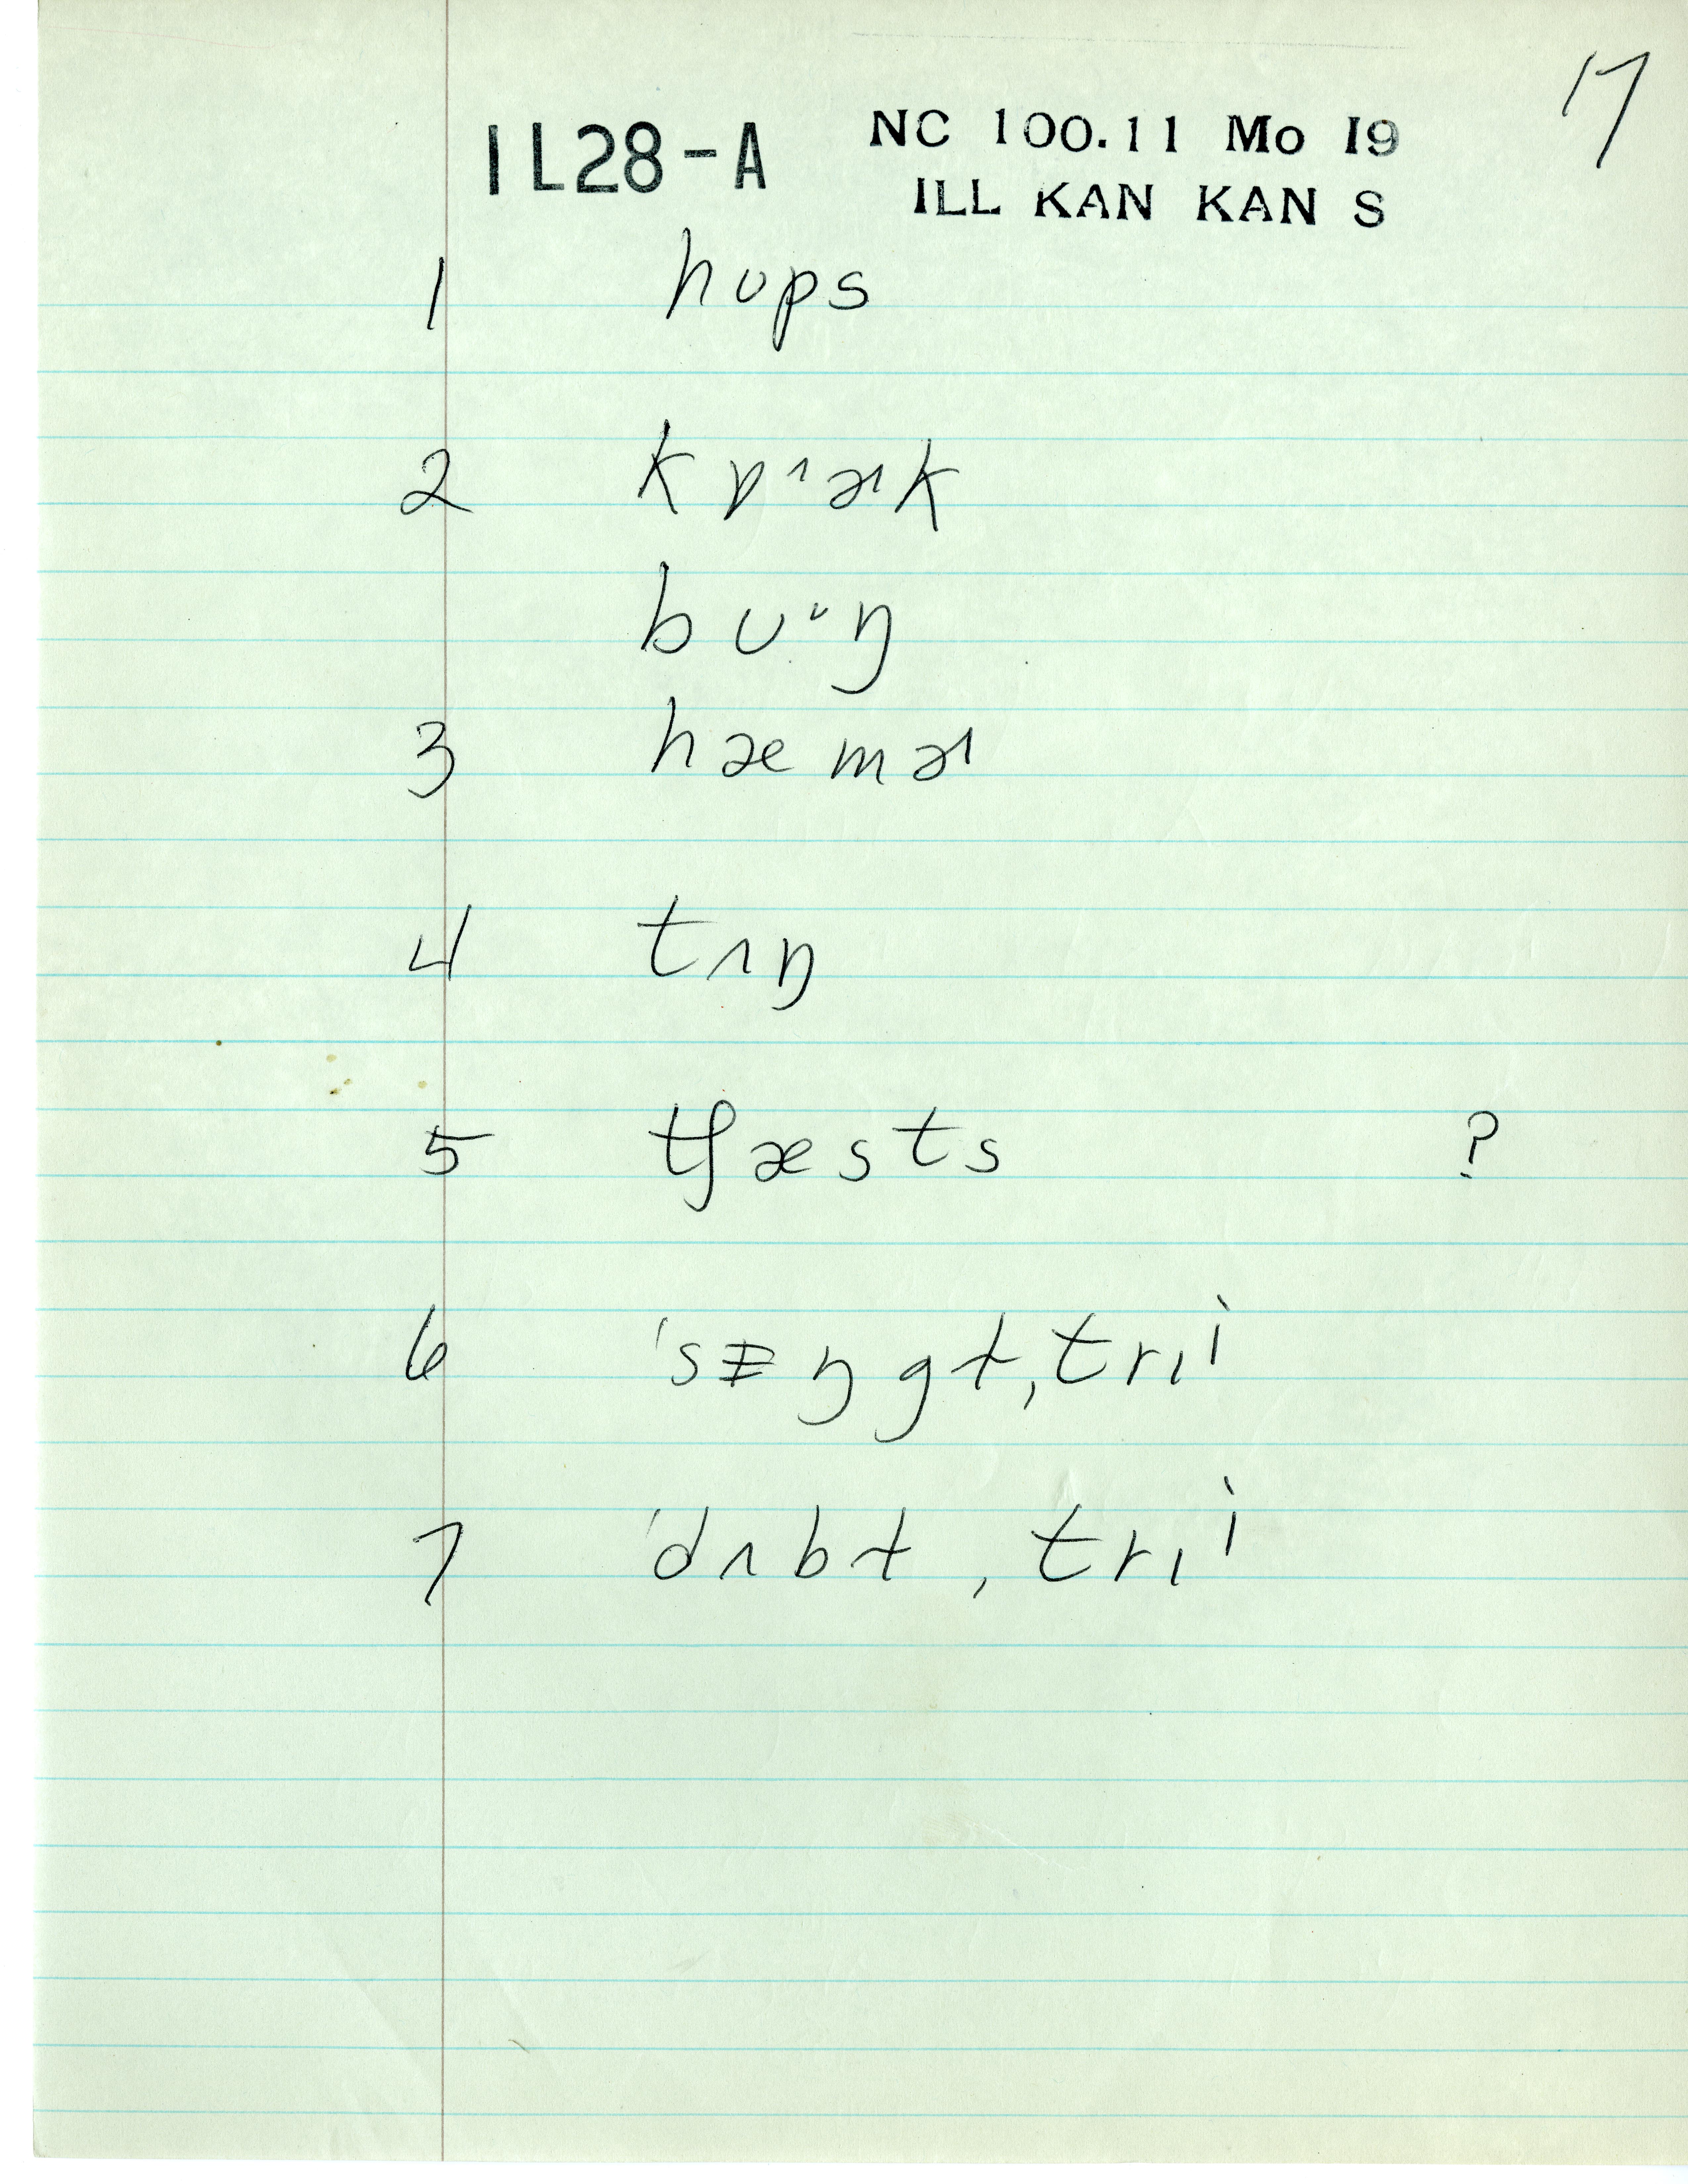 17
1L28-A
NC 100.11 Mo I9
ILL KAN KAN S
1 hʊps
2 kɒ^ɚk
bʊᶷŋ
3 hæmɚ
4 tʌŋ
5 tʃæsts ?
6 ˈsɪŋgɫˌtrɪⁱ
7 ˈdʌbɫˌtrɪⁱ